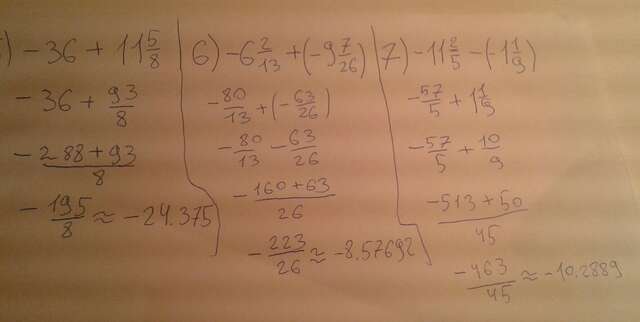 ) -36 + 11 5/8
-36 + 93/8
-288+93/8
-195/8 ≈ -24.375
6) -6 2/13 + (-9 7/26)
-80/13 + (-63/26)
-80/13 - 63/26
-160+63/26
-223/26 ≈ -8.57692
7) -11 2/5 - (-1 1/9)
-57/5 + 1 1/9
-57/5 + 10/9
-513+50/45
-463/45 ≈ -10.2889